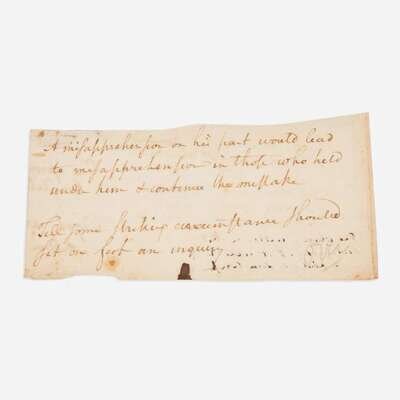 A misapprehension on his part would lead
to misapprehension in those who held
under him & continue the mistake
Till some striking circumstance should
set on foot an inquiry